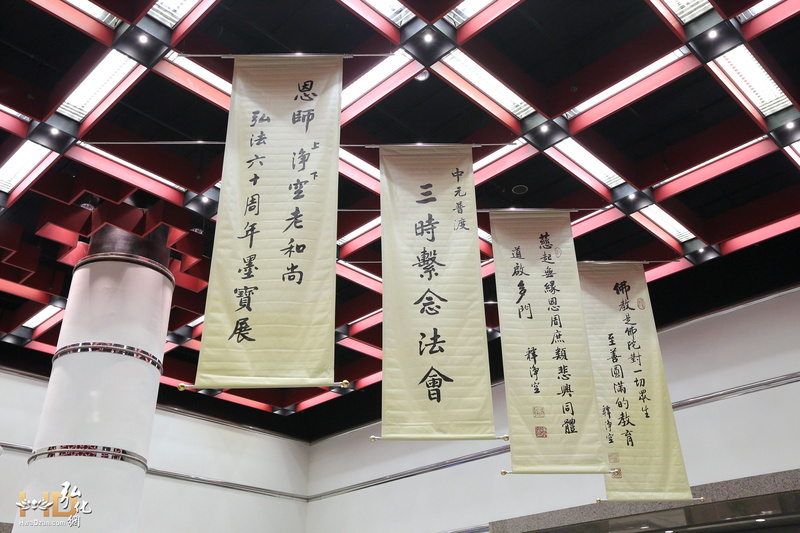 恩師上淨下空老和尚
弘法六十周年墨寶展
中元普渡
三時繫念法會
慈起無緣恩周庶類悲興同體
道啟多門
釋淨空
佛教是佛陀對一切眾生
至善圓滿的教育
釋淨空
弘化網
HwaDzan.com